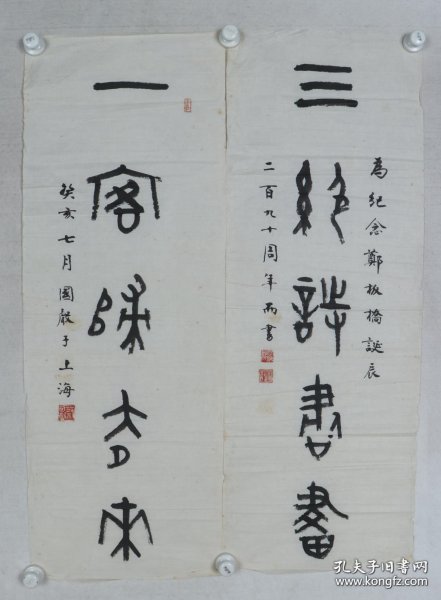 三絕詩書畫
為紀念鄭板橋誕辰
二百九十周年而書
一官歸去來
癸亥七月國于上海
孔夫子旧书网
www.kongfz.com